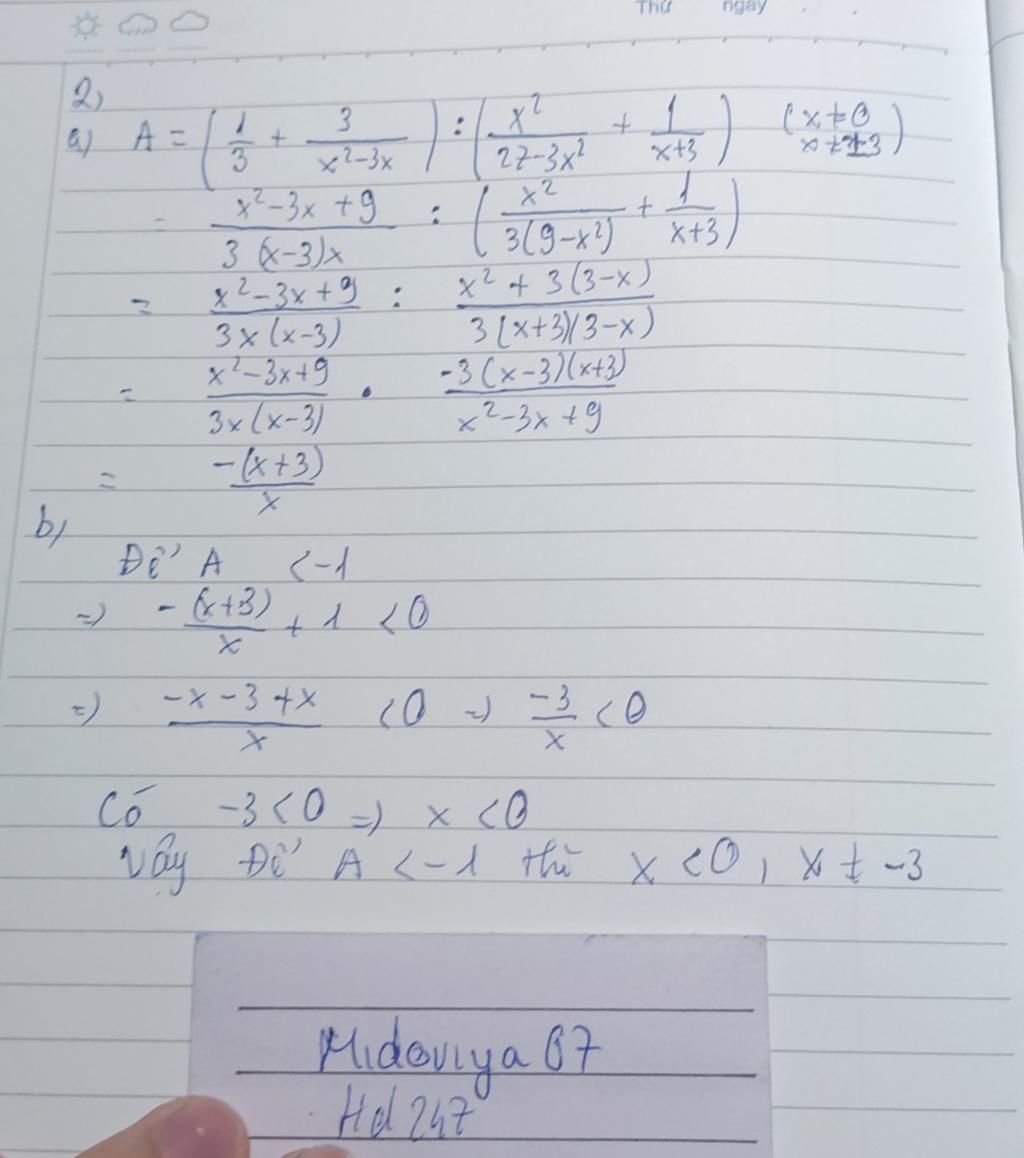 Thứ ngày
2)
a) A = (1/3 + 3/(x²-3x)) : (x²/(27-3x²) + 1/(x+3)) (x≠0 x≠±3)
= (x²-3x+9)/(3(x-3)x) : (x²/(3(9-x²)) + 1/(x+3))
= (x²-3x+9)/(3x(x-3)) : (x²+3(3-x))/(3(x+3)(3-x))
= (x²-3x+9)/(3x(x-3)) . (-3(x-3)(x+3))/(x²-3x+9)
= -(x+3)/x
b)
Để A <-1
=) -(x+3)/x + 1 <0
=) (-x-3+x)/x <0 =) -3/x <0
Có -3<0 =) x <0
Vậy Để A <-1 thì x <0, x ≠ -3
Midoviya 07
Hd 247